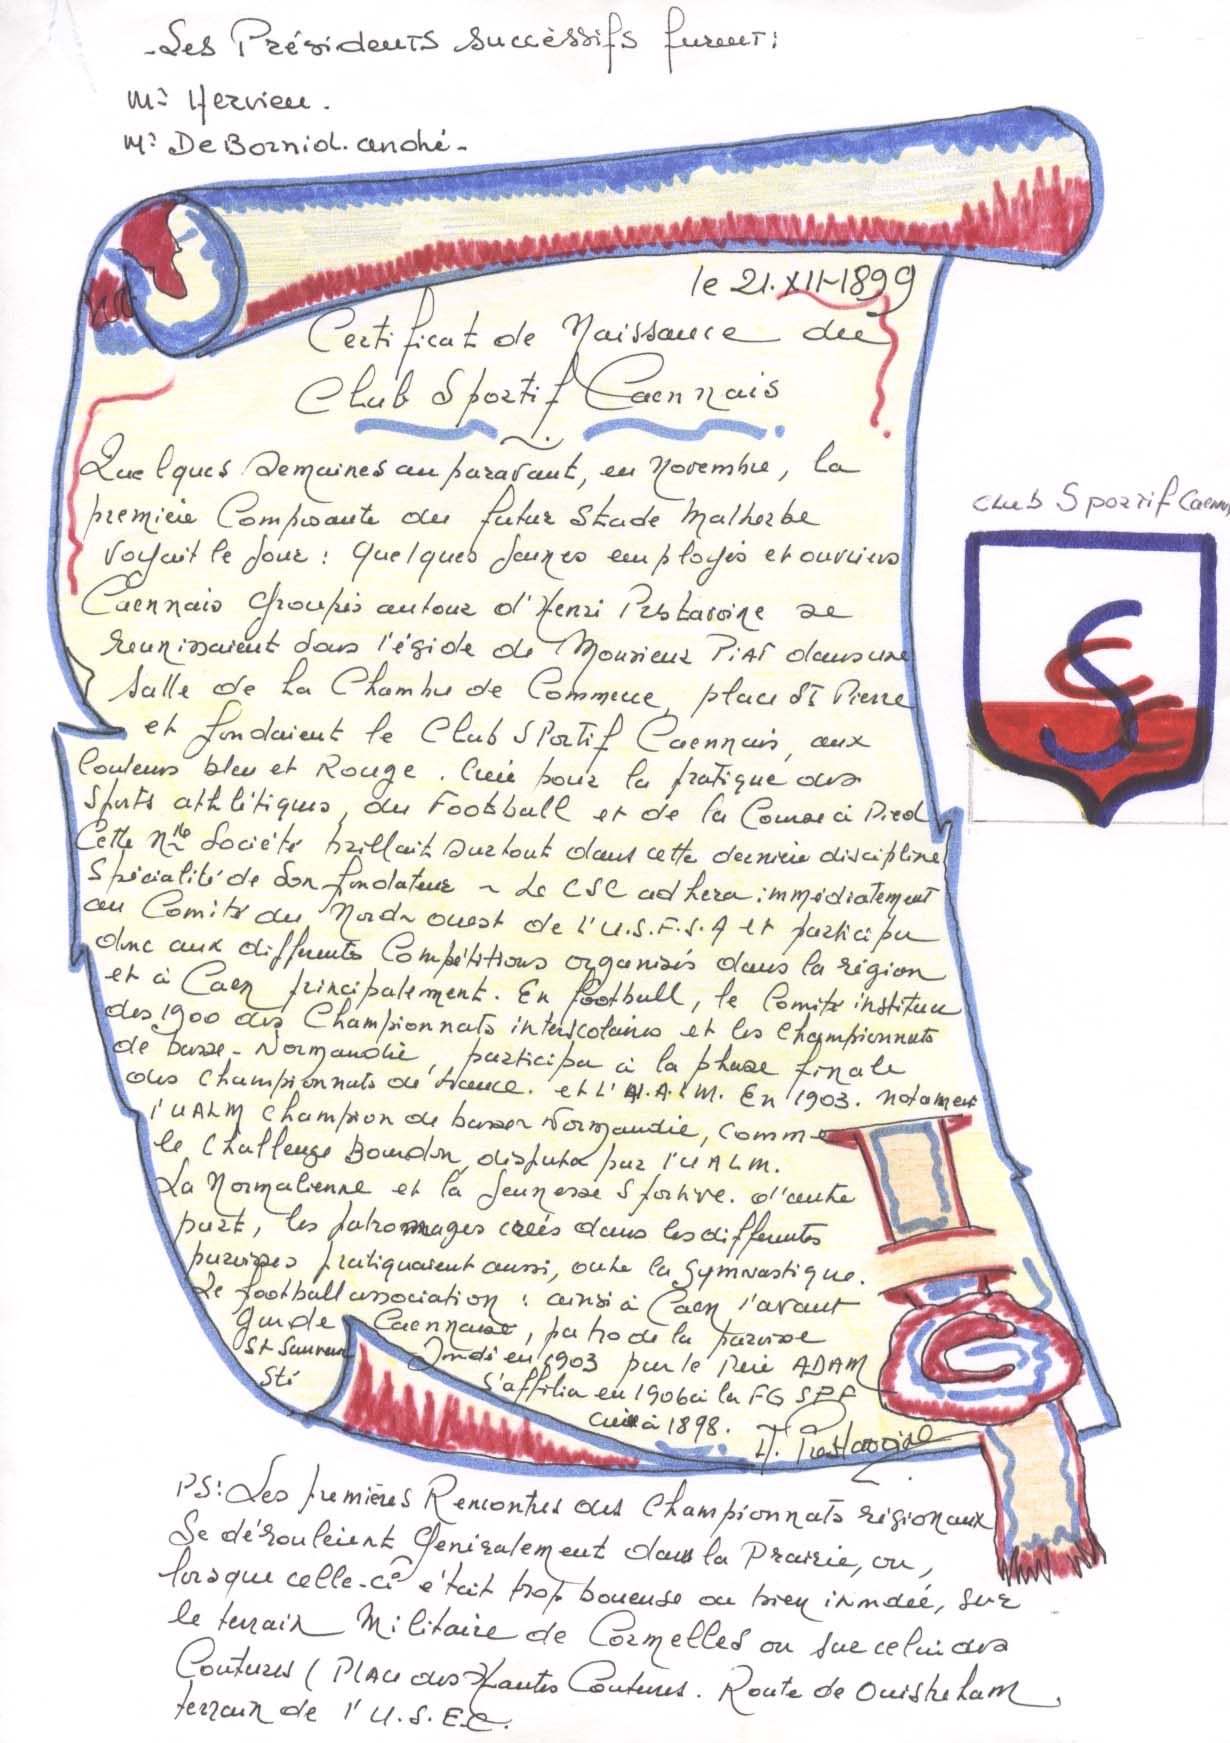 - Les Présidents successifs furent:
Mr Hervieu.
Mr De Bornid. andré -
le 21.XII-1899
Certificat de Naissance du
Club Sportif Caennais
Quelques semaines au paravant, en Novembre, la
premiere Composante du futur Stade Malherbe
voyait le jour : quelques jeunes employés et ouvriers
Caennais Groupés autour d'Henri Prstavoine se
reunissaient sous l'égide de Monsieur PIAT dans une
Salle de la Chambre de Commerce, place St Pierre
et fondaient le Club SPortif Caennais, aux
Couleurs bleu et Rouge. Créé pour la pratique des
Sports athlétiques, du Football et de la Course à Pied
Cette Nlle Société brillait surtout dans cette derniere discipline
Spécialité de son fondateur ~ Le CSC adhera immédiatement
au Comité du Nord-ouest de l'U.S.F.S.A et participa
donc aux differentes Compétitions organisés dans la région
et à Caen principalement. En football, le Comité institua
des 1900 des Championnats interscolaires et les Championnats
de basse-Normandie, participa à la phase finale
des championnats de france. et l'A.A.L.M. En 1903. notament
l'UALM Champion de basse Normandie, comme
le Challenge Bourdon, disputé par l'UALM.
La Normalienne et la Jeunesse Sportive. d'autre
part, les patronnages créés dans les differentes
paroisses pratiquaient aussi, outre la Gymnastique.
Le football association : ainsi à Caen l'avant
Garde Caennaise, patro de la paroisse
St Sauveur fondé en 1903 par le Père ADAM
Sté s'affilia en 1906 à la FG SPF
créée à 1898.
H. Prestavoine
club Sportif Caennais
CSC
PS: Les premières Rencontres des Championnats régionaux
Se dérouleient Généralement dans la Prairie, ou,
lorsque celle-ci était trop boueuse ou bien inondée, sur
le terrain Militaire de Cormelles ou sur celui des
Coutures (Place des Hautes Coutures. Route de Ouistreham,
terrain de l'U.S.E.C.